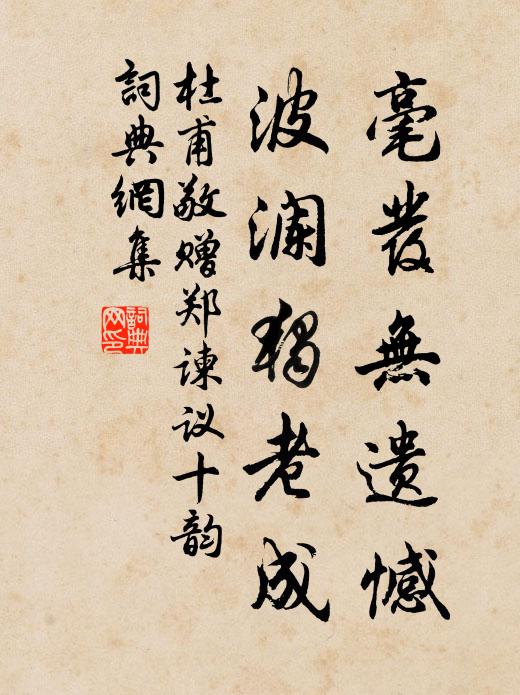 毫发無遗憾
波澜独老成
杜甫敬赠郑谏议十韵
詞典網集
詞典网印